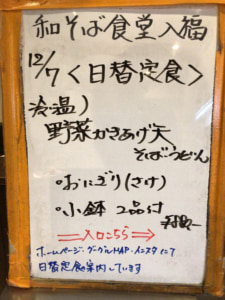 和そば食堂入福
12/7<日替定食>
冷温)
野菜かきあげ天
そば・うどん
・おにぎり(さけ)
・小鉢 2品付
⇒入口こちら→
ホームページ・グーグルMAP・インスタにて
日替定食案内しています